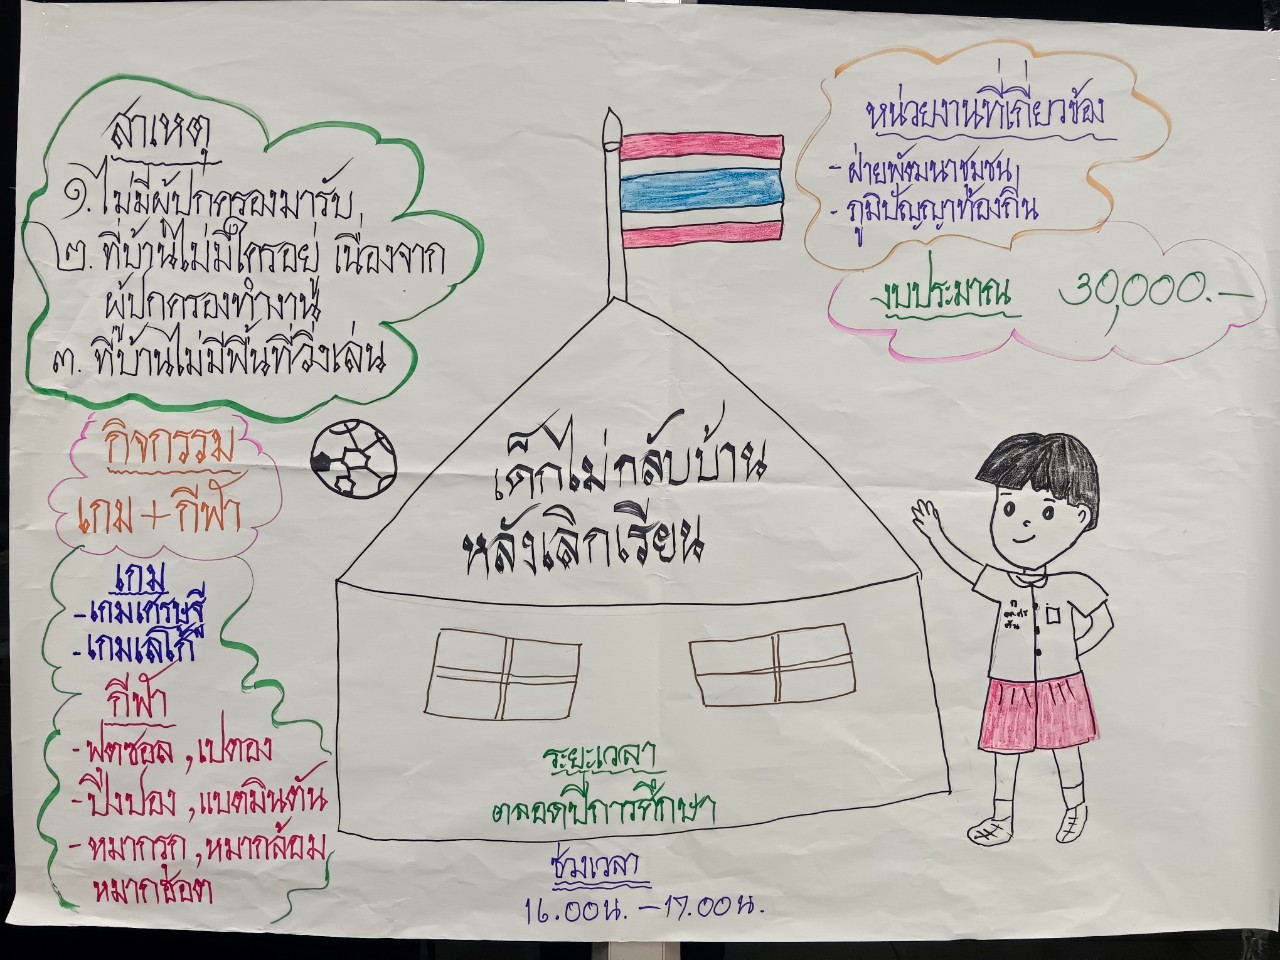 สาเหตุ
๑. ไม่มีผู้ปกครองมารับ
๒. ที่บ้านไม่มีใครอยู่ เนื่องจาก
ผู้ปกครองทำงาน
๓. ที่บ้านไม่มีพื้นที่วิ่งเล่น
หน่วยงานที่เกี่ยวข้อง
- ฝ่ายพัฒนาชุมชน
- ภูมิปัญญาท้องถิ่น
งบประมาณ 30,000.-
กิจกรรม
เกม + กีฬา
เกม
- เกมเศรษฐี
- เกมเลโก้
กีฬา
- ฟุตซอล , เปตอง
- ปิงปอง , แบตมินตัน
- หมากรุก , หมากล้อม
หมากฮอต
เด็กไม่กลับบ้าน
หลังเลิกเรียน
ระยะเวลา
ตลอดปีการศึกษา
ช่วงเวลา
16.00น. - 17.00น.